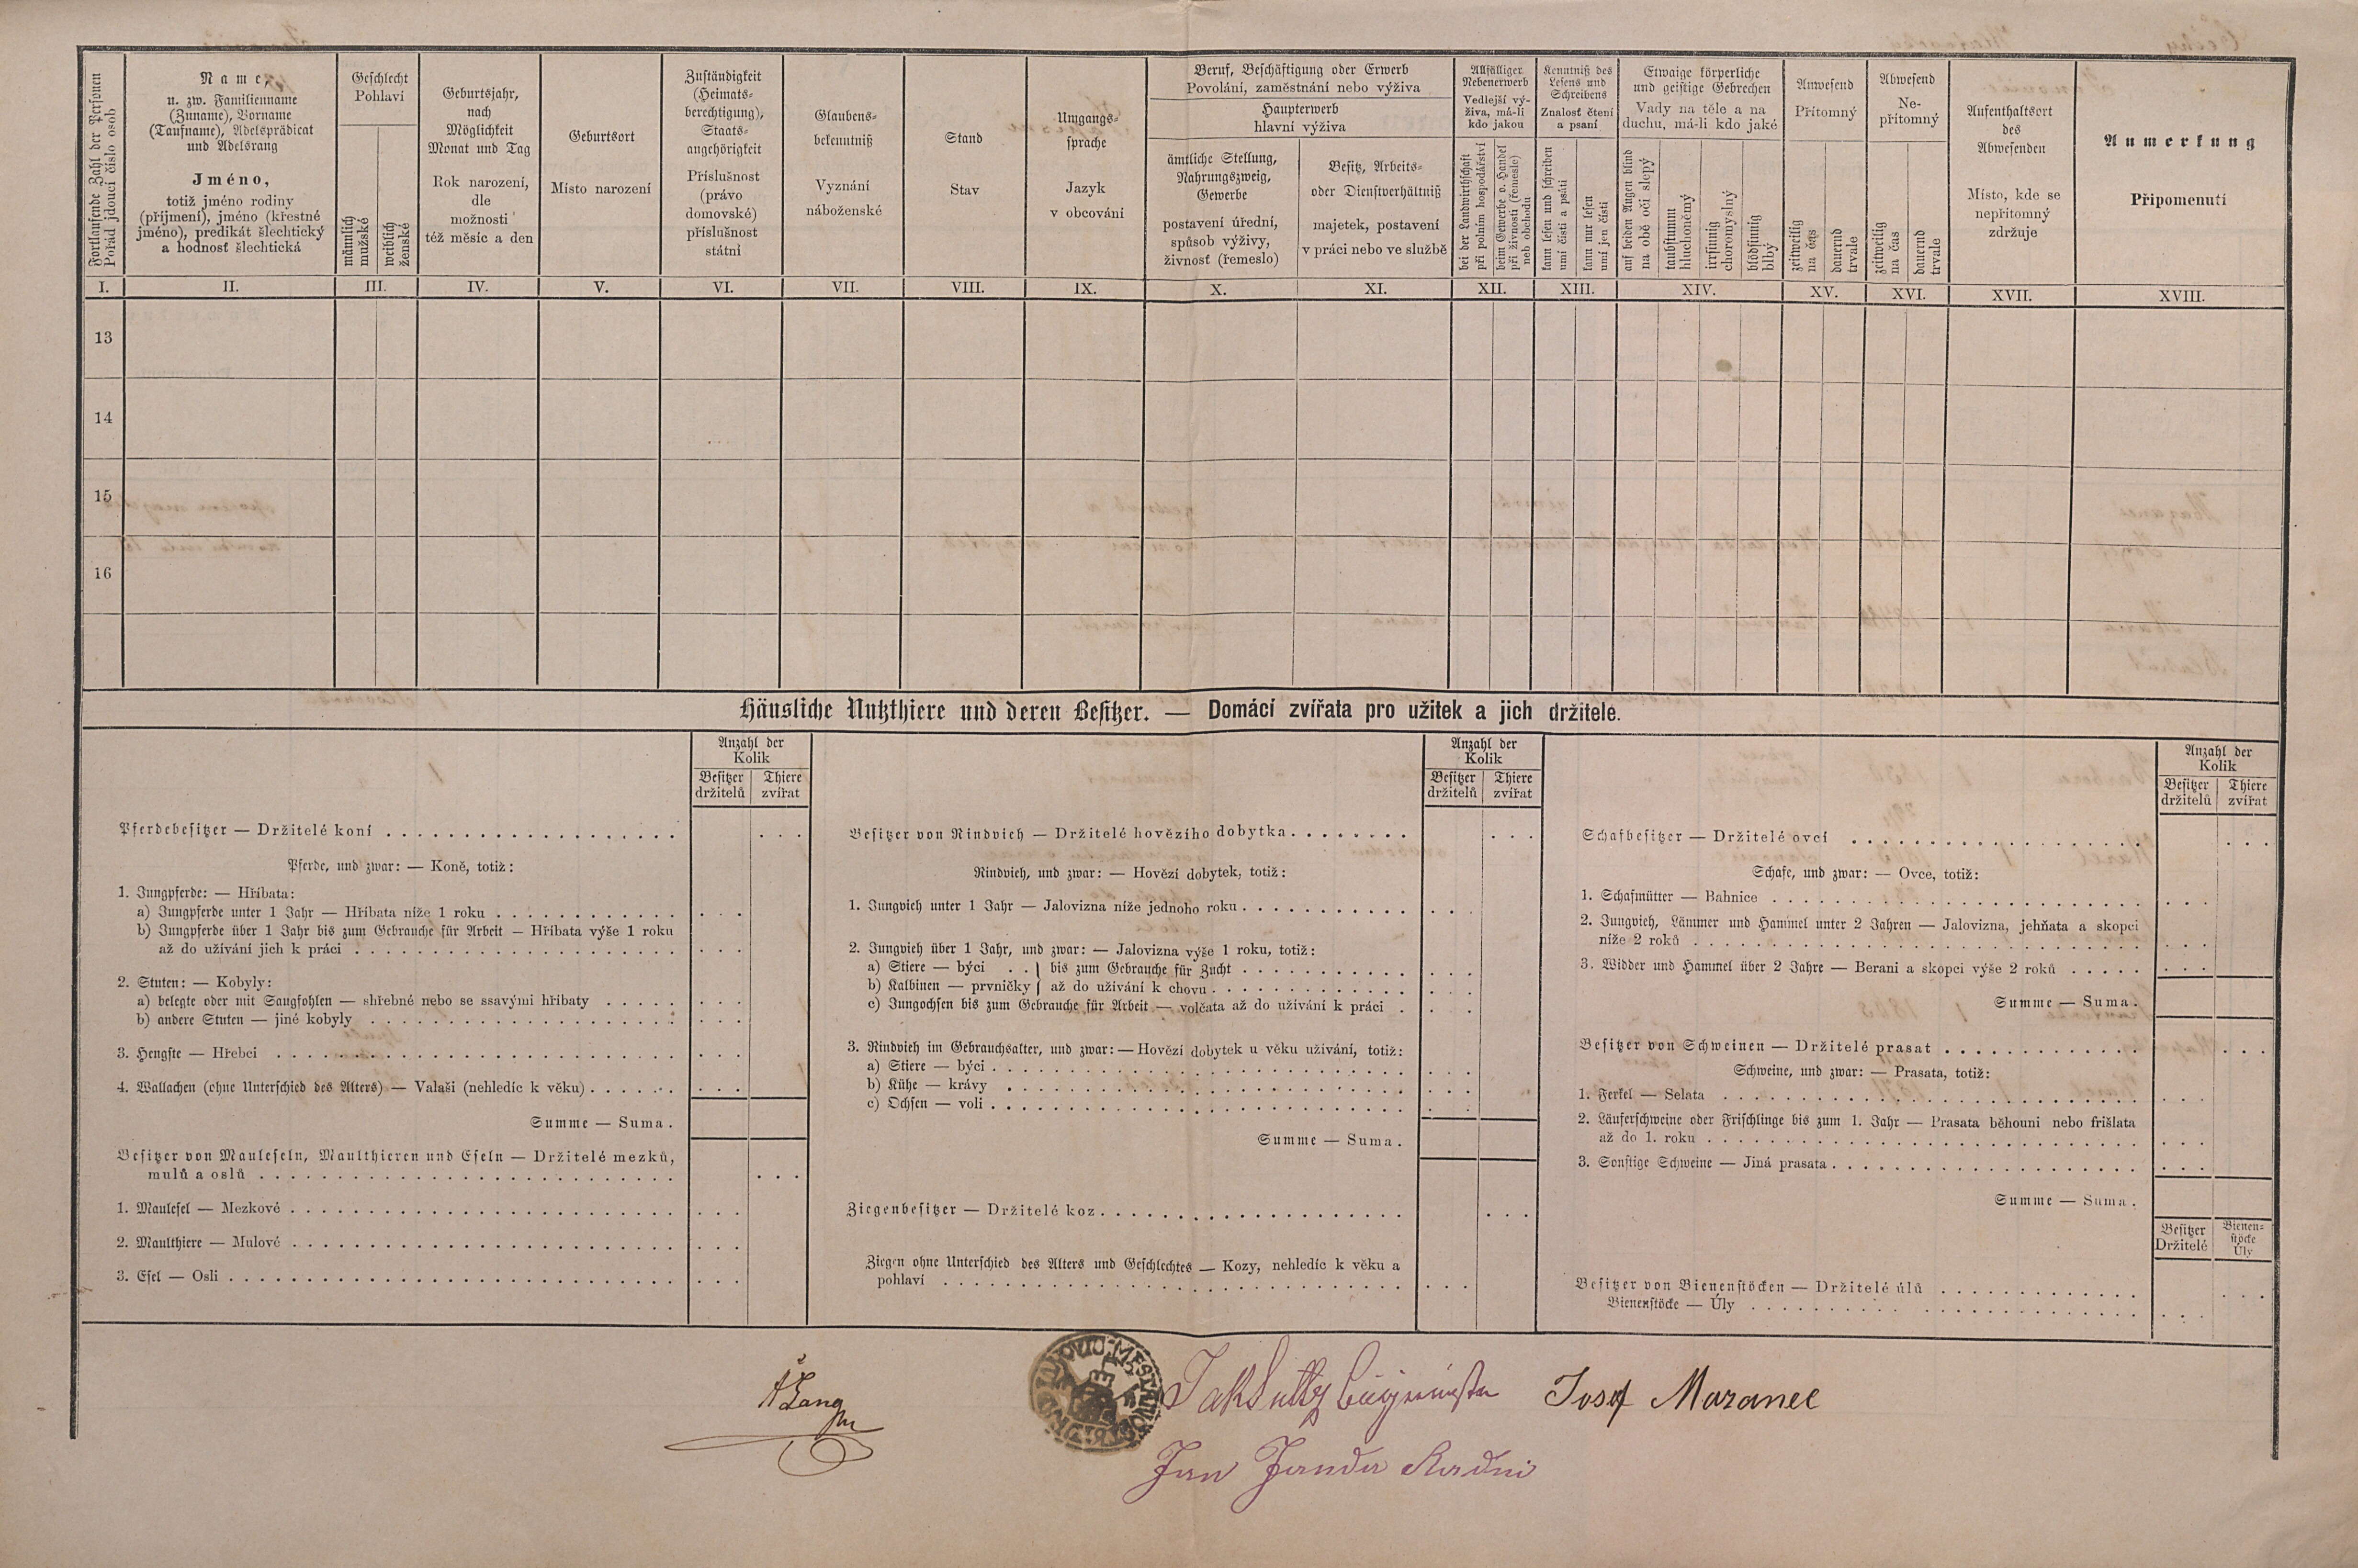 Fortlaufende Zahl der Personen
Pořád jdoucí číslo osob
Name,
u. zw. Familienname
(Zuname), Vorname
(Taufname), Adelsprädicat
und Adelsrang
Jméno,
totiž jméno rodiny
(příjmení), jméno (křestné
jméno), predikát šlechtický
a hodnosť šlechtická
Geschlecht
Pohlaví
männlich
mužské
weiblich
ženské
Geburtsjahr,
nach
Möglichkeit
Monat und Tag
Rok narození,
dle
možnosti
též měsíc a den
Geburtsort
Místo narození
Zuständigkeit
(Heimats-
berechtigung),
Staats-
angehörigkeit
Příslušnost
(právo
domovské)
příslušnost
státní
Glaubens-
bekenntniß
Vyznání
náboženské
Stand
Stav
Umgangs-
sprache
Jazyk
v obcování
Beruf, Beschäftigung oder Erwerb
Povolání, zaměstnání nebo výživa
Haupterwerb
hlavní výživa
ämtliche Stellung,
Nahrungszweig,
Gewerbe
postavení úřední,
spůsob výživy,
živnosť (řemeslo)
Besitz, Arbeits-
oder Dienstverhältniß
majetek, postavení
v práci nebo ve službě
Allfälliger
Nebenerwerb
Vedlejší vý-
živa, má-li
kdo jakou
bei der Landwirthschaft
při polním hospodářství
beim Gewerbe o. Handel
při živnosti (řemesle)
neb obchodu
Kenntniß des
Lesens und
Schreibens
Znalosť čtení
a psaní
kann lesen und schreiben
umí čísti a psáti
kann nur lesen
umí jen čísti
Etwaige körperliche
und geistige Gebrechen
Vady na těle a na
duchu, má-li kdo jaké
auf beiden Augen blind
na obě oči slepý
taubstumm
hluchoněmý
irrsinnig
choromyslný
blödsinnig
blbý
Anwesend
Přítomný
zeitweilig
na čas
dauernd
trvale
Abwesend
Ne-
přítomný
zeitweilig
na čas
dauernd
trvale
Aufenthaltsort
des
Abwesenden
Místo, kde se
nepřítomný
zdržuje
Anmerkung
Připomenutí
I. II. III. IV. V. VI. VII. VIII. IX. X. XI. XII. XIII. XIV. XV. XVI. XVII. XVIII.
13
14
15
16
Häusliche Nutzthiere und deren Besitzer. — Domácí zvířata pro užitek a jich držitelé.
Anzahl der
Kolik
Besitzer Thiere
držitelů zvířat
Pferdebesitzer — Držitelé koní
Pferde, und zwar: — Koně, totiž:
1. Jungpferde: — Hříbata:
a) Jungpferde unter 1 Jahr — Hříbata níže 1 roku
b) Jungpferde über 1 Jahr bis zum Gebrauche für Arbeit — Hříbata výše 1 roku
až do užívání jich k práci
2. Stuten: — Kobyly:
a) belegte oder mit Saugfohlen — shřebné nebo se ssavými hříbaty
b) andere Stuten — jiné kobyly
3. Hengste — Hřebci
4. Wallachen (ohne Unterschied des Alters) — Valaši (nehledíc k věku)
Summe — Suma.
Besitzer von Mauleseln, Maulthieren und Eseln — Držitelé mezků,
mulů a oslů
1. Maulesel — Mezkové
2. Maulthiere — Mulové
3. Esel — Osli
Anzahl der
Kolik
Besitzer Thiere
držitelů zvířat
Besitzer von Rindvieh — Držitelé hovězího dobytka
Rindvieh, und zwar: — Hovězí dobytek, totiž:
1. Jungvieh unter 1 Jahr — Jalovizna níže jednoho roku
2. Jungvieh über 1 Jahr, und zwar: — Jalovizna výše 1 roku, totiž:
a) Stiere — býci . . } bis zum Gebrauche für Zucht
b) Kalbinen — prvničky } až do užívání k chovu
c) Jungochsen bis zum Gebrauche für Arbeit — volčata až do užívání k práci
3. Rindvieh im Gebrauchsalter, und zwar: — Hovězí dobytek u věku užívání, totiž:
a) Stiere — býci
b) Kühe — krávy
c) Ochsen — voli
Summe — Suma.
Ziegenbesitzer — Držitelé koz
Ziegen ohne Unterschied des Alters und Geschlechtes — Kozy, nehledíc k věku a
pohlaví
Anzahl der
Kolik
Besitzer Thiere
držitelů zvířat
Schafbesitzer — Držitelé ovcí
Schafe, und zwar: — Ovce, totiž:
1. Schafmütter — Bahnice
2. Jungvieh, Lämmer und Hammel unter 2 Jahren — Jalovizna, jehňata a skopci
níže 2 roků
3. Widder und Hammel über 2 Jahre — Berani a skopci výše 2 roků
Summe — Suma.
Besitzer von Schweinen — Držitelé prasat
Schweine, und zwar: — Prasata, totiž:
1. Ferkel — Selata
2. Läuferschweine oder Frischlinge bis zum 1. Jahr — Prasata běhouni nebo frišlata
až do 1. roku
3. Sonstige Schweine — Jiná prasata
Summe — Suma.
Besitzer Bienen-
stöcke
Držitelé Úly
Besitzer von Bienenstöcken — Držitelé úlů
Bienenstöcke — Úly
Lang
Josef Mazanec
Jan Janda Radní